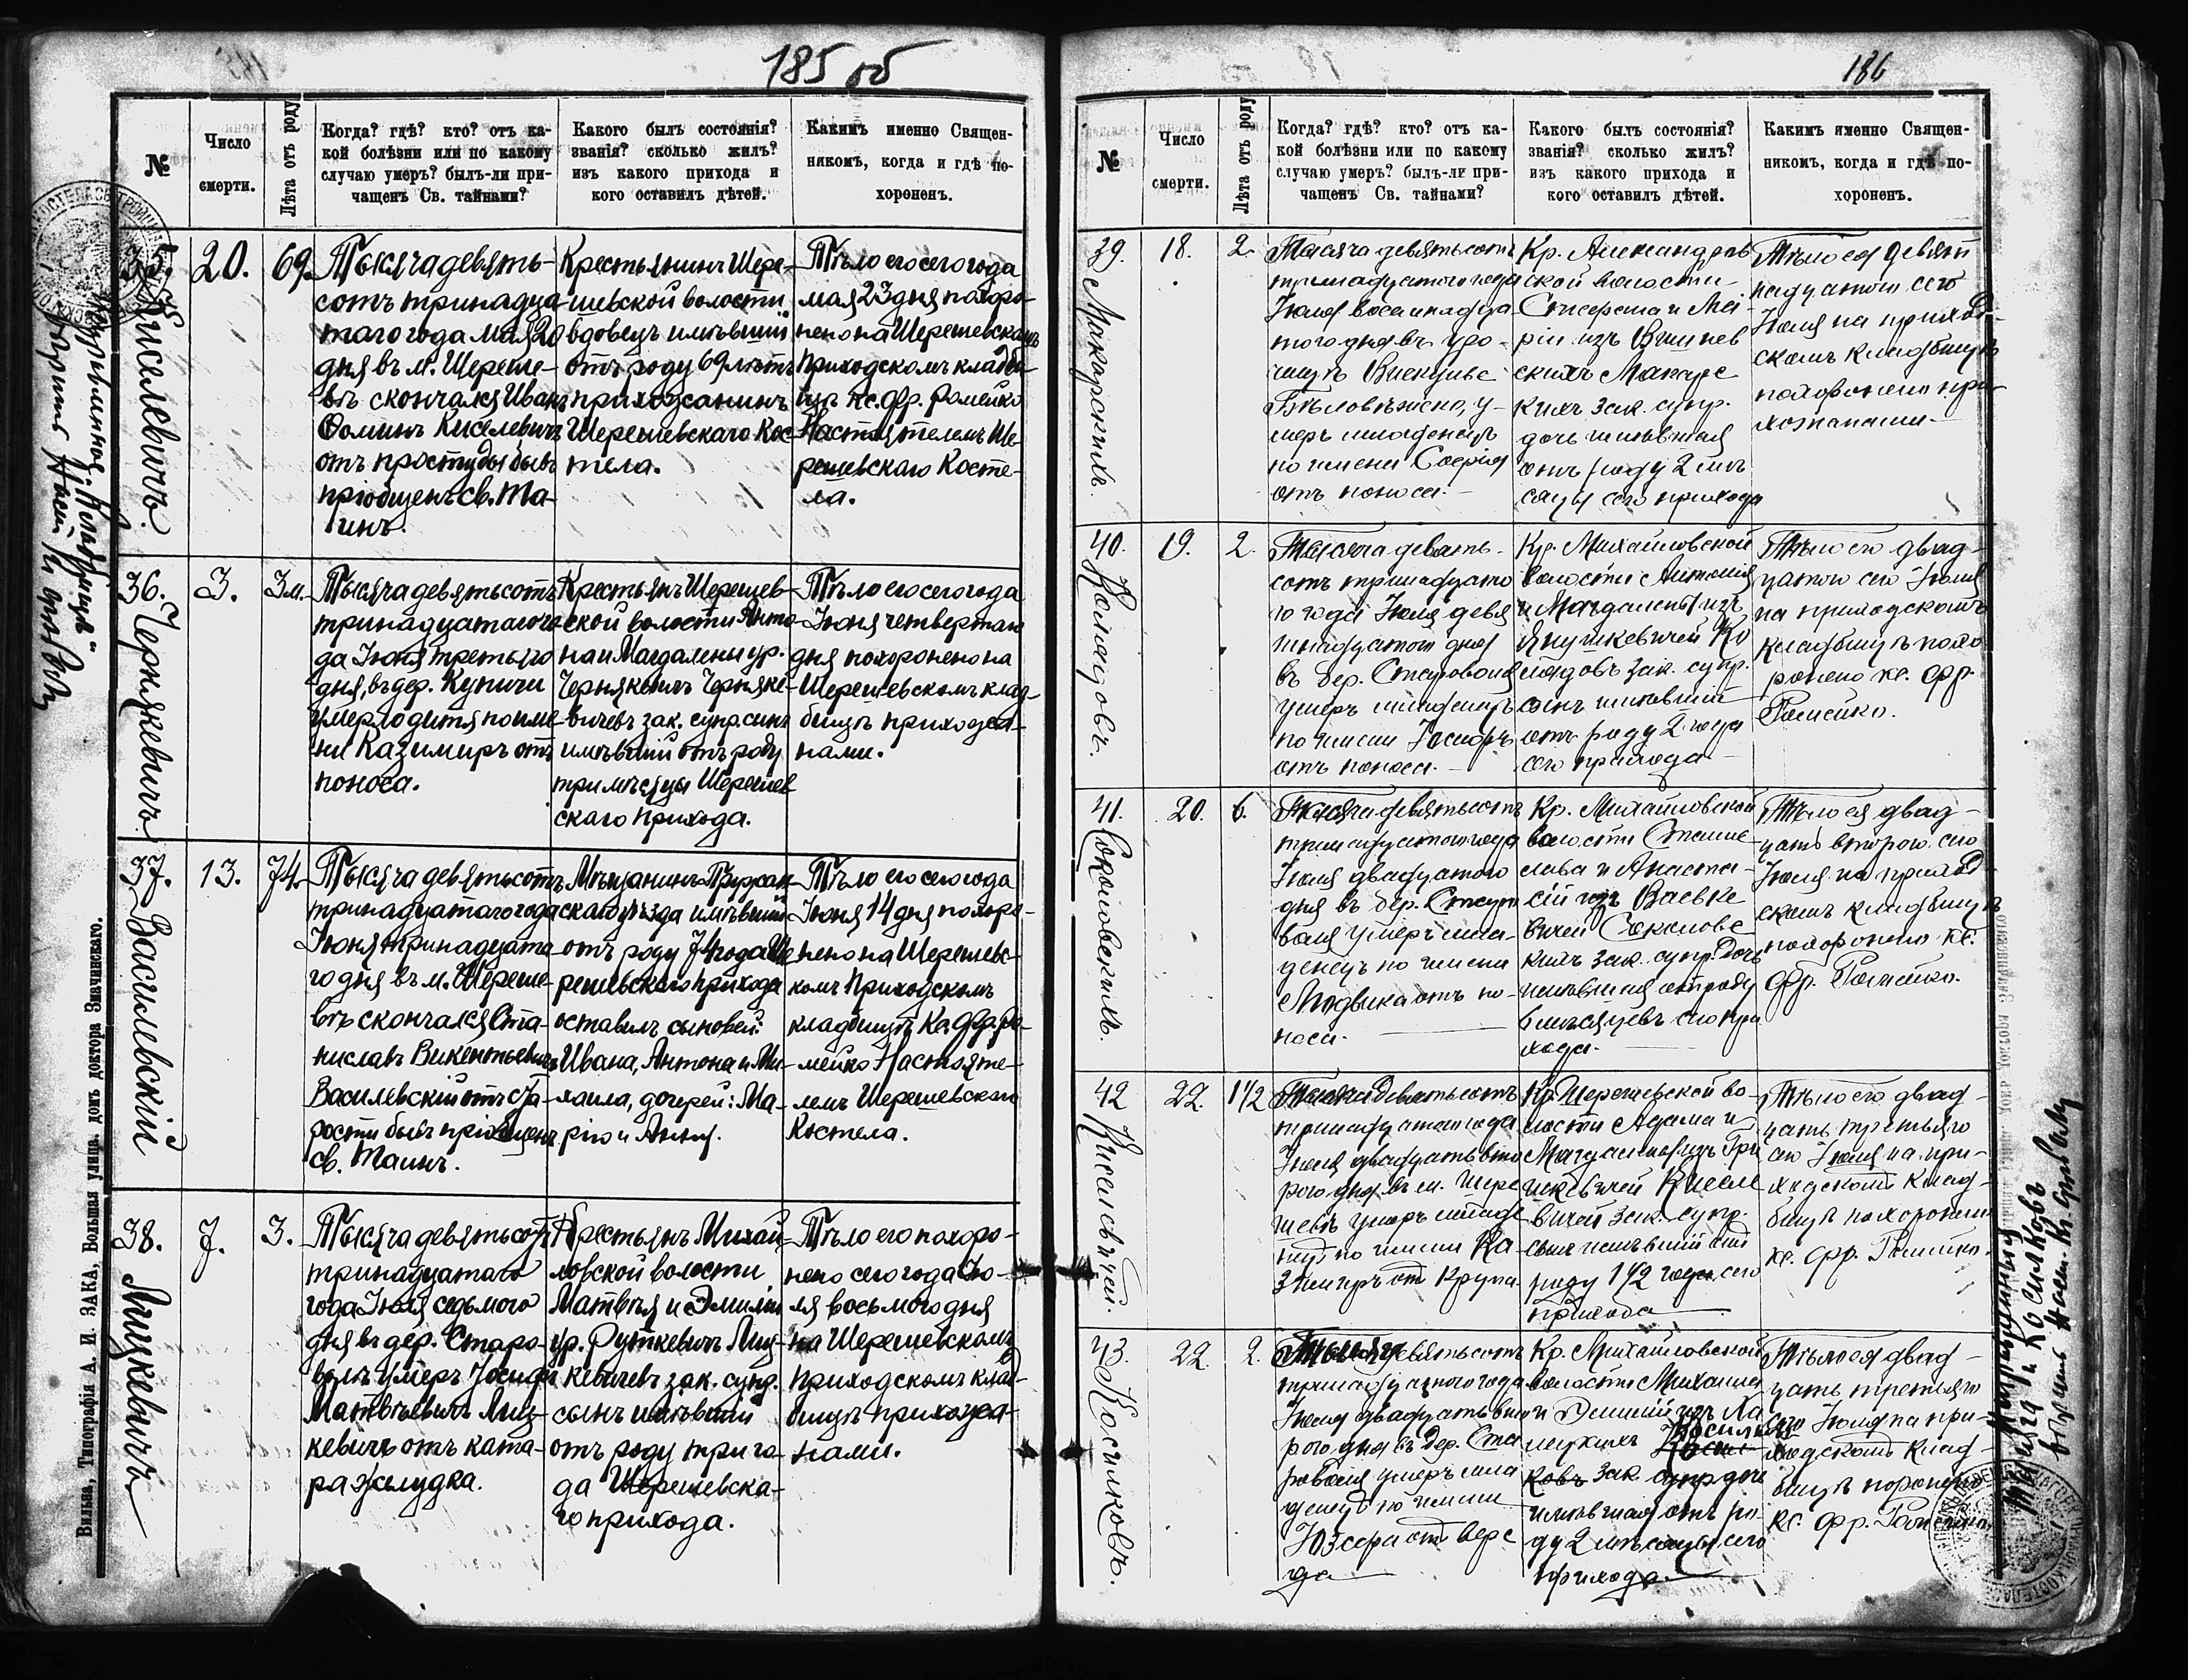 185 об
№
Число
смерти.
Лѣта отъ роду
Когда? гдѣ? кто? отъ ка-
кой болѣзни или по какому
случаю умеръ? былъ-ли при-
чащенъ Св. тайнами?
Какого былъ состоянія?
званія? сколько жилъ?
изъ какого прихода и
кого оставилъ дѣтей.
Какимъ именно Священ-
никомъ, когда и гдѣ по-
хороненъ.
35.
Киселевичъ.
20.
69
Тысяча девять-
сотъ тринадца
таго года мая 20
дня въ м. Шереше-
вѣ скончался Иванъ
Ѳоминъ Киселевичъ
отъ простуды бывъ
пріобщенъ св. Та-
инъ.
Крестьянинъ Шере-
шевской волости
вдовецъ имѣвшій
отъ роду 69 лѣтъ
прихожанинъ
Шерешевскаго Кос-
тела.
Тѣло его сего года
мая 23 дня похоро-
нено на Шерешевскомъ
Приходскомъ кладби-
щѣ Кс. Фр. Ромейко
Настоятелемъ Ше-
решевскаго Косте-
ла.
36.
Чернякевичъ
3.
3 м.
Тысяча девятьсотъ
тринадцатаго го
да Іюня третьяго
дня, въ дер. Купичи
умерло дитя по име
ни Казимиръ отъ
поноса.
Крестьянъ Шерешев-
ской волости Анто
на и Магдалены ур.
Чернякевичъ Черняке-
вичевъ зак. супр. сынъ
имѣвшій отъ роду
три мѣсяцы Шерешев
скаго Прихода.
Тѣло его сего года
Іюня четвертаго
дня похоронено на
Шерешевскомъ клад-
бищѣ прихожа-
нами.
37.
Василевскій
13.
74.
Тысяча девятьсотъ
тринадцатаго года
Іюня тринадцата
го дня въ м. Шереше-
вѣ скончался Ста-
ниславъ Викентьевичъ
Василевскій отъ ста-
рости бывъ пріобщенъ
св. Таинъ.
Мѣщанинъ Пружан-
скаго уѣзда имѣвшій
отъ роду 74 года Ше
решевскаго прихода
оставилъ сыновей:
Ивана, Антона и Ми-
хаила, дочерей: Ма-
рію и Анну.
Тѣло его сего года
Іюня 14 дня похоро-
нено на Шерешевс-
комъ Приходскомъ
кладбищѣ Кс. Фр. Ро-
мейко Настояте-
лемъ Шерешевскаго
Костела.
38.
Лицкевичъ
7.
3.
Тысяча девятьсотъ
тринадцатаго
года Іюля седьмого
дня въ дер. Старо-
волѣ умеръ Іосифъ
Матвѣевичъ Лиц-
кевичъ отъ ката-
ра желудка.
Крестьянъ Михай-
ловской волости
Матвѣя и Эмиліи
ур. Руткевичъ Лиц-
кевичевъ зак. супр.
сынъ имѣвшій
отъ роду три го-
да Шерешевска-
го прихода.
Тѣло его похоро-
нено сего года Ію-
ля восьмого дня
на Шерешевскомъ
приходскомъ клад-
бищѣ прихожа-
нами.
Вильна, Типографія А. И. ЗАКА, Большая улица. домъ доктора Значинскаго.
186
№
Число
смерти.
Лѣта отъ роду
Когда? гдѣ? кто? отъ ка-
кой болѣзни или по какому
случаю умеръ? былъ-ли при-
чащенъ Св. тайнами?
Какого былъ состоянія?
званія? сколько жилъ?
изъ какого прихода и
кого оставилъ дѣтей.
Какимъ именно Священ-
никомъ, когда и гдѣ по-
хороненъ.
39.
Макарскихъ.
18.
2.
Тысяча девятьсотъ
тринадцатого года
Іюля восемнадца
того дня въ уро-
чищѣ
умеръ младенецъ
по имени Софія
отъ поноса.
Кр. Александров
ской волости
Стефана и Ма-
ріи изъ Вишнев
скихъ Макарс
кихъ зак. супр.
дочь имѣвшая
отъ роду 2 мѣ
сяцы сего прихода
Тѣло ея девят
надцатого сего
Іюля на приход-
скомъ кладбищѣ
похоронено при
хожанами.
40.
19.
2.
Тысяча девять-
сотъ тринадцато
го года Іюля девя
тнадцатого дня
въ дер. Староволя
умеръ младенецъ
по имени Іосифъ
отъ поноса.
Кр. Михайловской
волости Антонія
и Магдалены изъ
Янушкевичей
зак. супр.
сынъ имѣвшій
отъ роду 2 года
сего прихода
Тѣло его двад-
цатого сего Іюля
на приходскомъ
кладбищѣ похо
ронено кс. Фр.
Ромейко.
41.
Соколовскихъ.
20.
6.
Тысяча девятьсотъ
тринадцатого года
Іюля двадцатого
дня въ дер. Старо
воля умеръ мла-
денецъ по имени
Людвика отъ по-
носа.
Кр. Михайловской
волости Станис
лава и Анаста-
сіи изъ Ваське
вичей Соколовс
кихъ зак. супр. дочь
имѣвшая отъ роду
6 мѣсяцевъ сего при
хода.
Тѣло ея двад-
цать второго сего
Іюля на приход-
скомъ кладбищѣ
похоронено кс.
Фр. Ромейко.
42
Киселевичей.
22.
1 1/2
Тысяча девятьсотъ
тринадцатого года
Іюля двадцать вто
рого дня въ м. Шере
шевѣ умеръ младе
нецъ по имени Ка
зимиръ отъ крупа.
Кр. Шерешевской во-
лости Адама и
Магдалены изъ Гри
шкевичей Кисел
вичей зак. супр.
сынъ имѣвшій отъ
роду 1 1/2 года сего
прихода
Тѣло его двад-
цать третьяго
сего Іюля на при-
ходскомъ клад-
бищѣ похоронено
кс. Фр. Ромейко.
43.
Косилковъ.
22.
2.
Тысяча девятьсотъ
тринадцатого года
Іюля двадцать вто
рого дня въ дер. Ста
роволя умеръ мла
денецъ по имени
Юзефа отъ
Кр. Михайловской
волости Михаила
и
зак. супр. дочь
имѣвшая отъ ро-
ду 2 мѣсяцы сего
прихода.
Тѣло ея двад-
цать третьяго
сего Іюля на при-
ходскомъ клад-
бищѣ
кс. Фр. Ромейко.